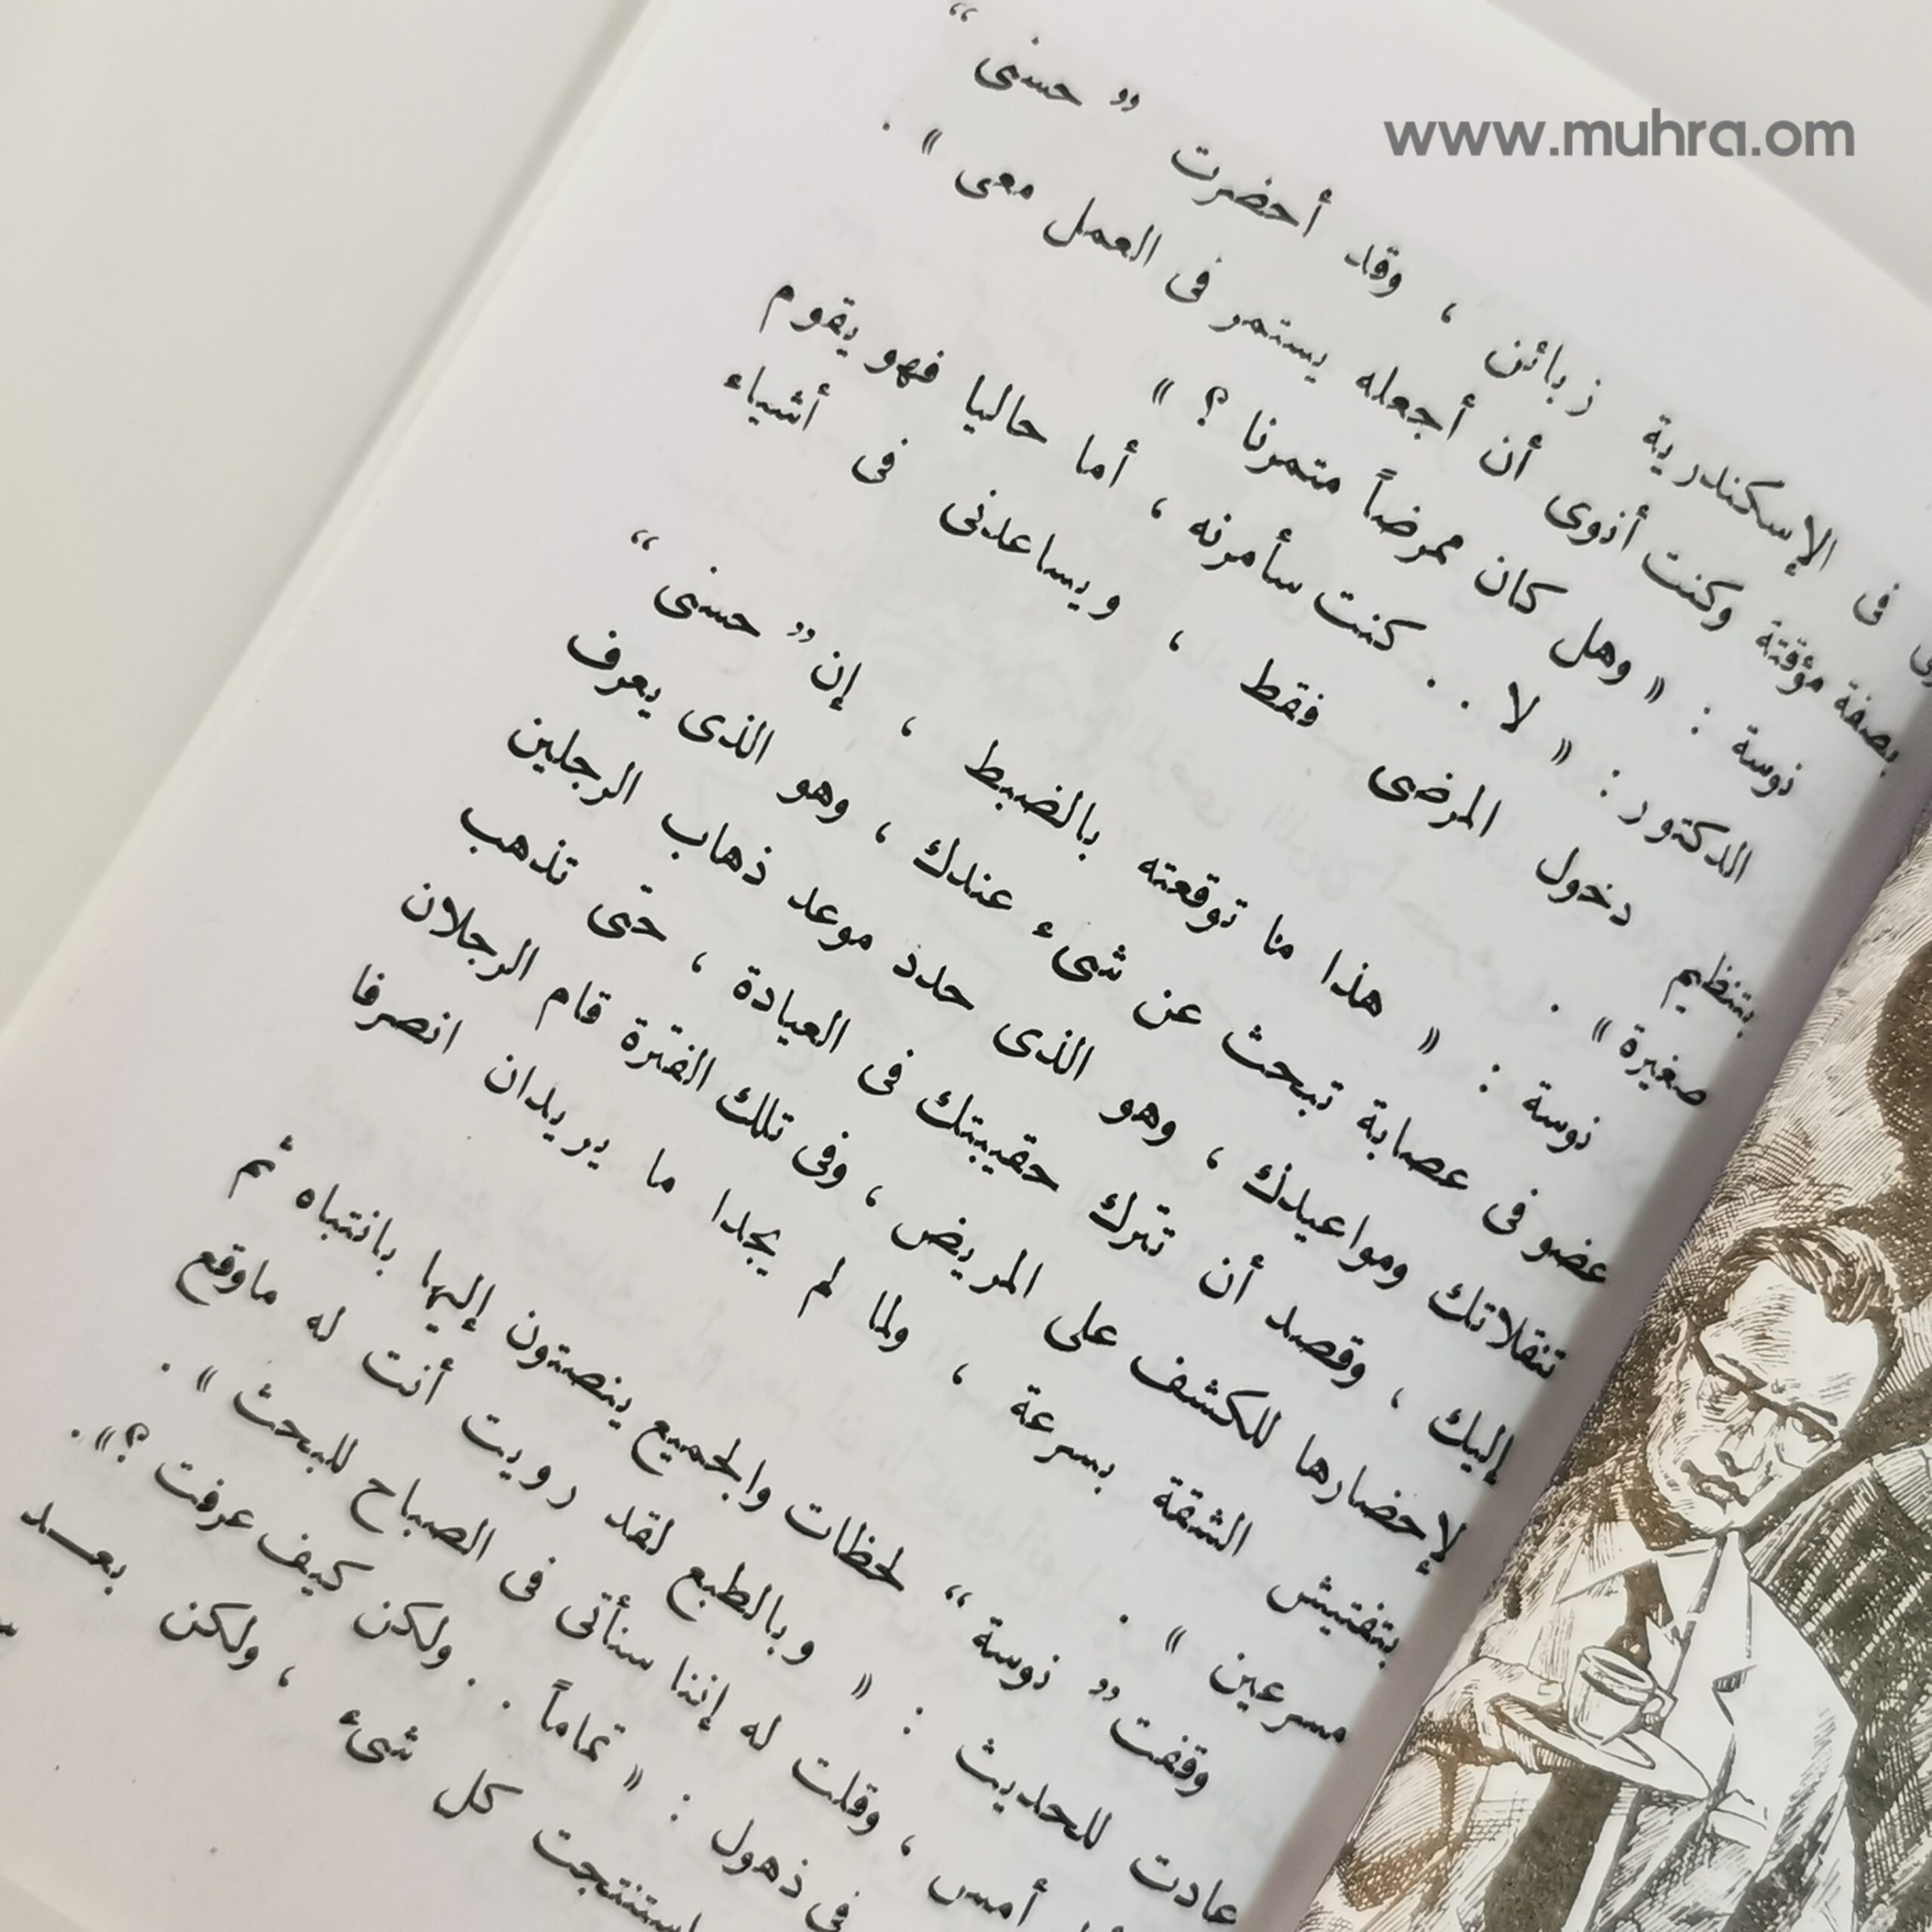 www.muhra.om
فى الإسكندرية زبائن ، وقد أحضرت " حسنى "
بصفة مؤقتة وكنت أنوى أن أجعله يستمر فى العمل معى » .
نوسة : « وهل كان ممرضاً متمرنا ؟ »
الدكتور : « لا . . كنت سأمرنه ، أما حاليا فهو يقوم
بتنظيم دخول المرضى فقط ، ويساعدنى فى أشياء
صغيرة » .
نوسة : « هذا ما توقعته بالضبط ، إن " حسنى "
عضو فى عصابة تبحث عن شىء عندك ، وهو الذى يعرف
تنقلاتك ومواعيدك ، وهو الذى حدد موعد ذهاب الرجلين
إليك ، وقصد أن تترك حقيبتك فى العيادة ، حتى تذهب
لإحضارها للكشف على المريض ، وفى تلك الفترة قام الرجلان
بتفتيش الشقة بسرعة ، ولما لم يجدا ما يريدان انصرفا
مسرعين » .
وقفت " نوسة " لحظات والجميع ينصتون إليها بانتباه ثم
عادت للحديث : « وبالطبع لقد رويت أنت له ماوقع
أمس ، وقلت له إننا سنأتى فى الصباح للبحث » .
فى ذهول : « تماماً . . ولكن كيف عرفت ؟» .
استنتجت كل شىء ، ولكن بعد